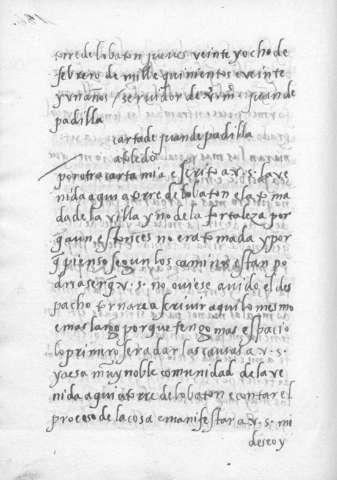 torre de lobaton jueves veinte y ocho de
febrero de mille quinientos e veinte
y un años / servidor de v. m. juan de
padilla
carta de juan de padilla
a toledo
por otra carta mia e scrito a v. s. la ve
nida aqui a torre de lobaton e la toma
da de la villa y no de la fortaleza por
q aun estonces no era tomada y por
q pienso segun los caminos estan po
dra ser q v. s. no oviese avido el des
pacho tornare a scrivir aqui lo mesmo
e mas largo porque tengo mas espacio
lo primero sera dar las causas a v. s.
y a esa muy noble comunidad de la ve
nida aqui a torre de lobaton e contar el
proceso de la cosa e manifestar a v. s. mi
deseo y